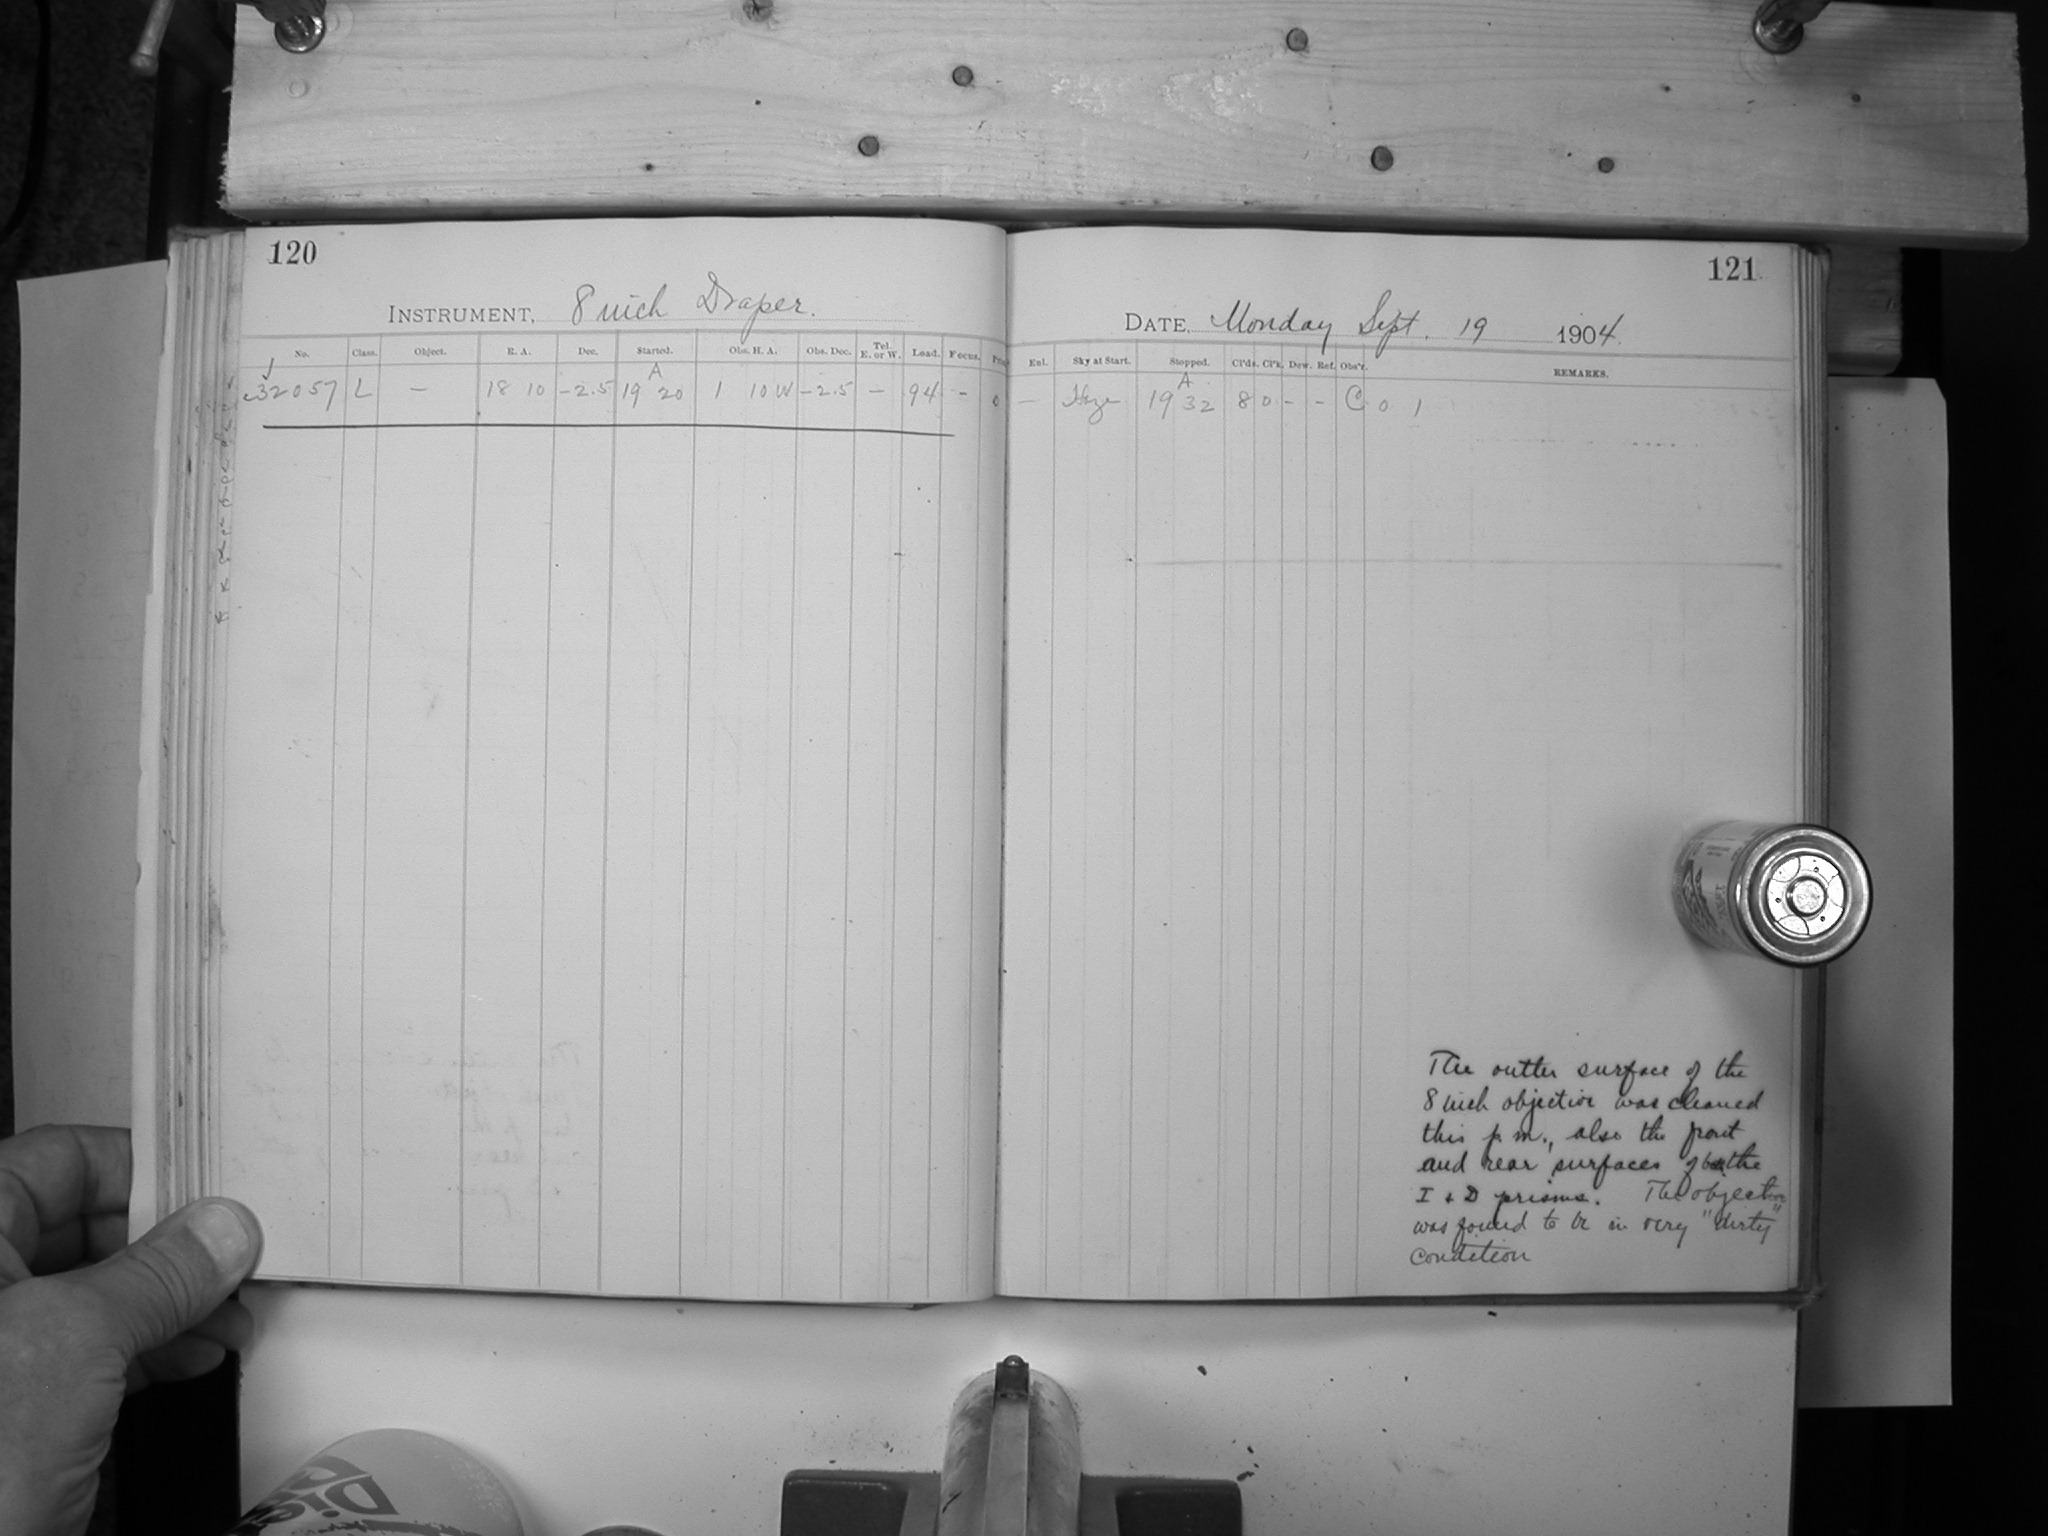 120
INSTRUMENT, 8 inch Draper.
No. Class. Object. R. A. Dec. Started. Obs. H. A. Obs. Dec. Tel. E. or W. Load. Focus.
32057 L – 18 10 –2.5 A 19 20 1 10 W –2.5 – 94 – 0
121
DATE, Monday Sept. 19 1904
Enl. Sky at Start. Stopped. Cl'ds. Cl'k. Dew. Ref. Obs'r. REMARKS.
– Haze A 19 32 8 0 – – C 0 1
The outter surface of the
8 inch objective was cleaned
this p.m., also the front
and rear surfaces of the
I & D prisms. The objective
was found to be in very "dirty"
condition